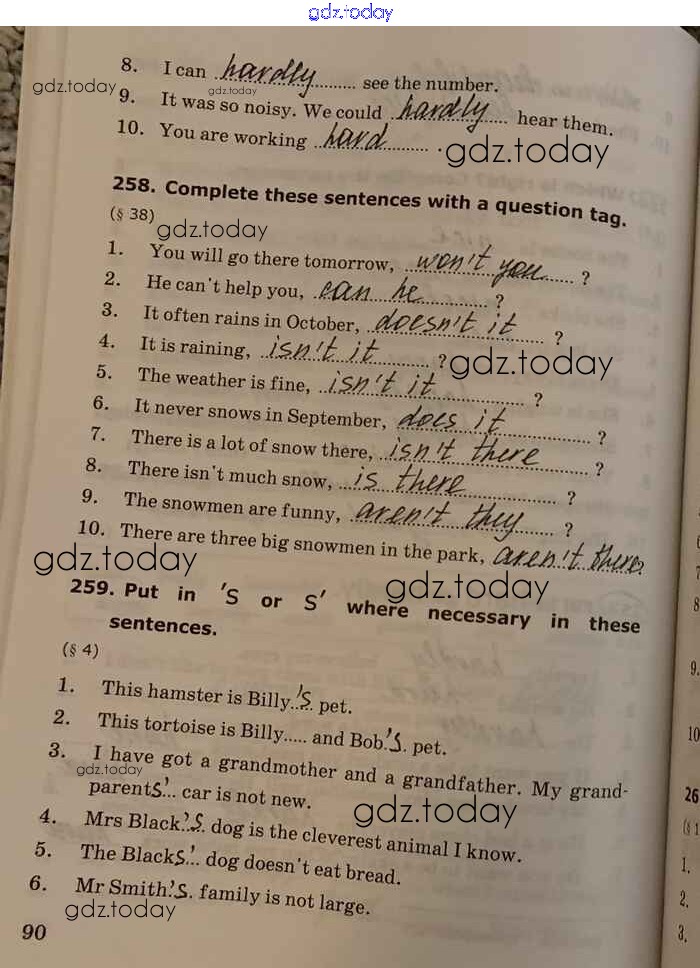 gdz.today
8. I can hardly see the number.
gdz.today gdz.today
9. It was so noisy. We could hardly hear them.
10. You are working hard.
gdz.today
258. Complete these sentences with a question tag.
(§ 38)
gdz.today
1. You will go there tomorrow, won't you ?
2. He can't help you, can he ?
3. It often rains in October, doesn't it ?
4. It is raining, isn't it ?
gdz.today
5. The weather is fine, isn't it ?
6. It never snows in September, does it ?
7. There is a lot of snow there, isn't there ?
8. There isn't much snow, is there ?
9. The snowmen are funny, aren't they ?
10. There are three big snowmen in the park, aren't there?
gdz.today
gdz.today
259. Put in 's or s' where necessary in these
sentences.
(§ 4)
1. This hamster is Billy..'s. pet.
2. This tortoise is Billy..... and Bob.'s. pet.
3. I have got a grandmother and a grandfather. My grand-
gdz.today
parents'.. car is not new.
gdz.today
4. Mrs Black.'s. dog is the cleverest animal I know.
5. The Blacks'.. dog doesn't eat bread.
6. Mr Smith.'s. family is not large.
gdz.today
90
8
9.
10
26
(§ 1
1.
2.
3.